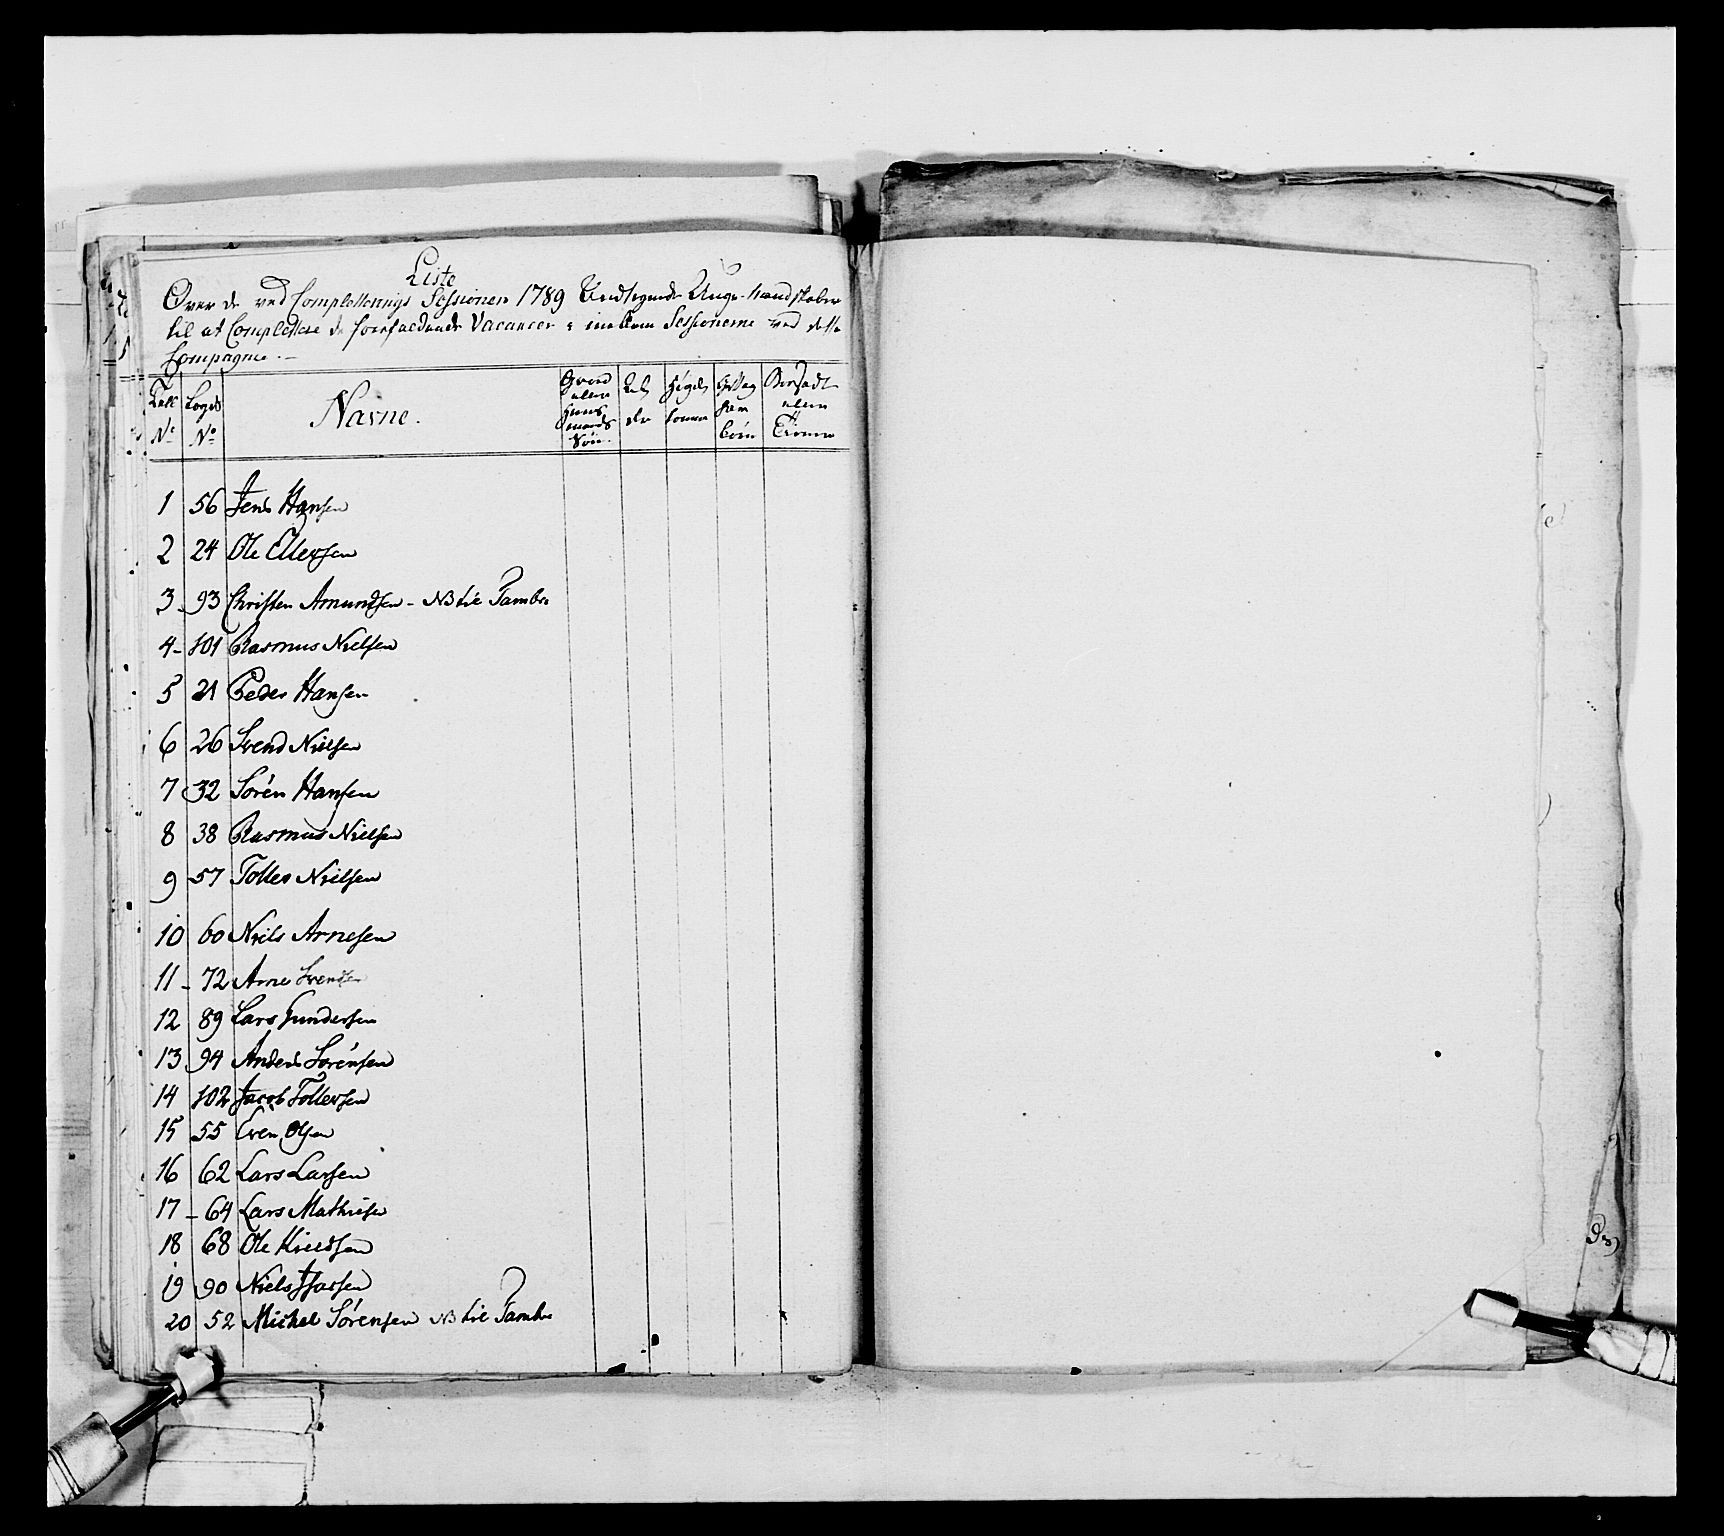 Liste
Over de ved Completterings Sessionen 1789 Udtagende Unge Mandskaber
til at Complettere de forefaldende Vacancer imellem Sessionerne ved dette
Compagnie.
Tall N° Loegds N° Navne. Gaard eller Huus mands Søn. Al der Høyde tomer Gift og har Børn Bosadt eller Tiener
1 56 Jens Hansen
2 24 Ole Ellefsen
3 93 Christen Amundsen - NB til Tambr
4 - 101 Rasmus Nielsen
5 21 Peder Hansen
6 26 Svend Nielsen
7 32 Søren Hansen
8 38 Rasmus Nielsen
9 57 Tollev Nielsen
10 60 Niels Arnesen
11 - 72 Arne Svendsen
12 89 Lars Gundersen
13 94 Anders Sørensen
14 102 Jacob Tollefsen
15 55 Even Olsen
16 62 Lars Larsen
17 - 64 Lars Mathisen
18 68 Ole Knudsen
19 90 Niels
20 52 Michel Sørensen NB til Tambr